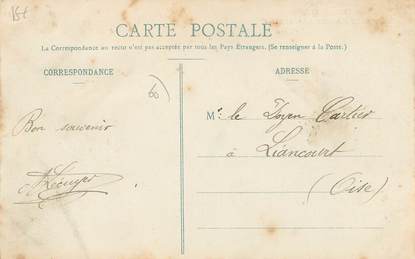 CARTE POSTALE
La Correspondance au recto n'est pas acceptée par tous les Pays Étrangers. (Se renseigner à la Poste.)
CORRESPONDANCE
ADRESSE
60
Mr. le Doyen Cartier
à Liancourt
(Oise)
Bon souvenir